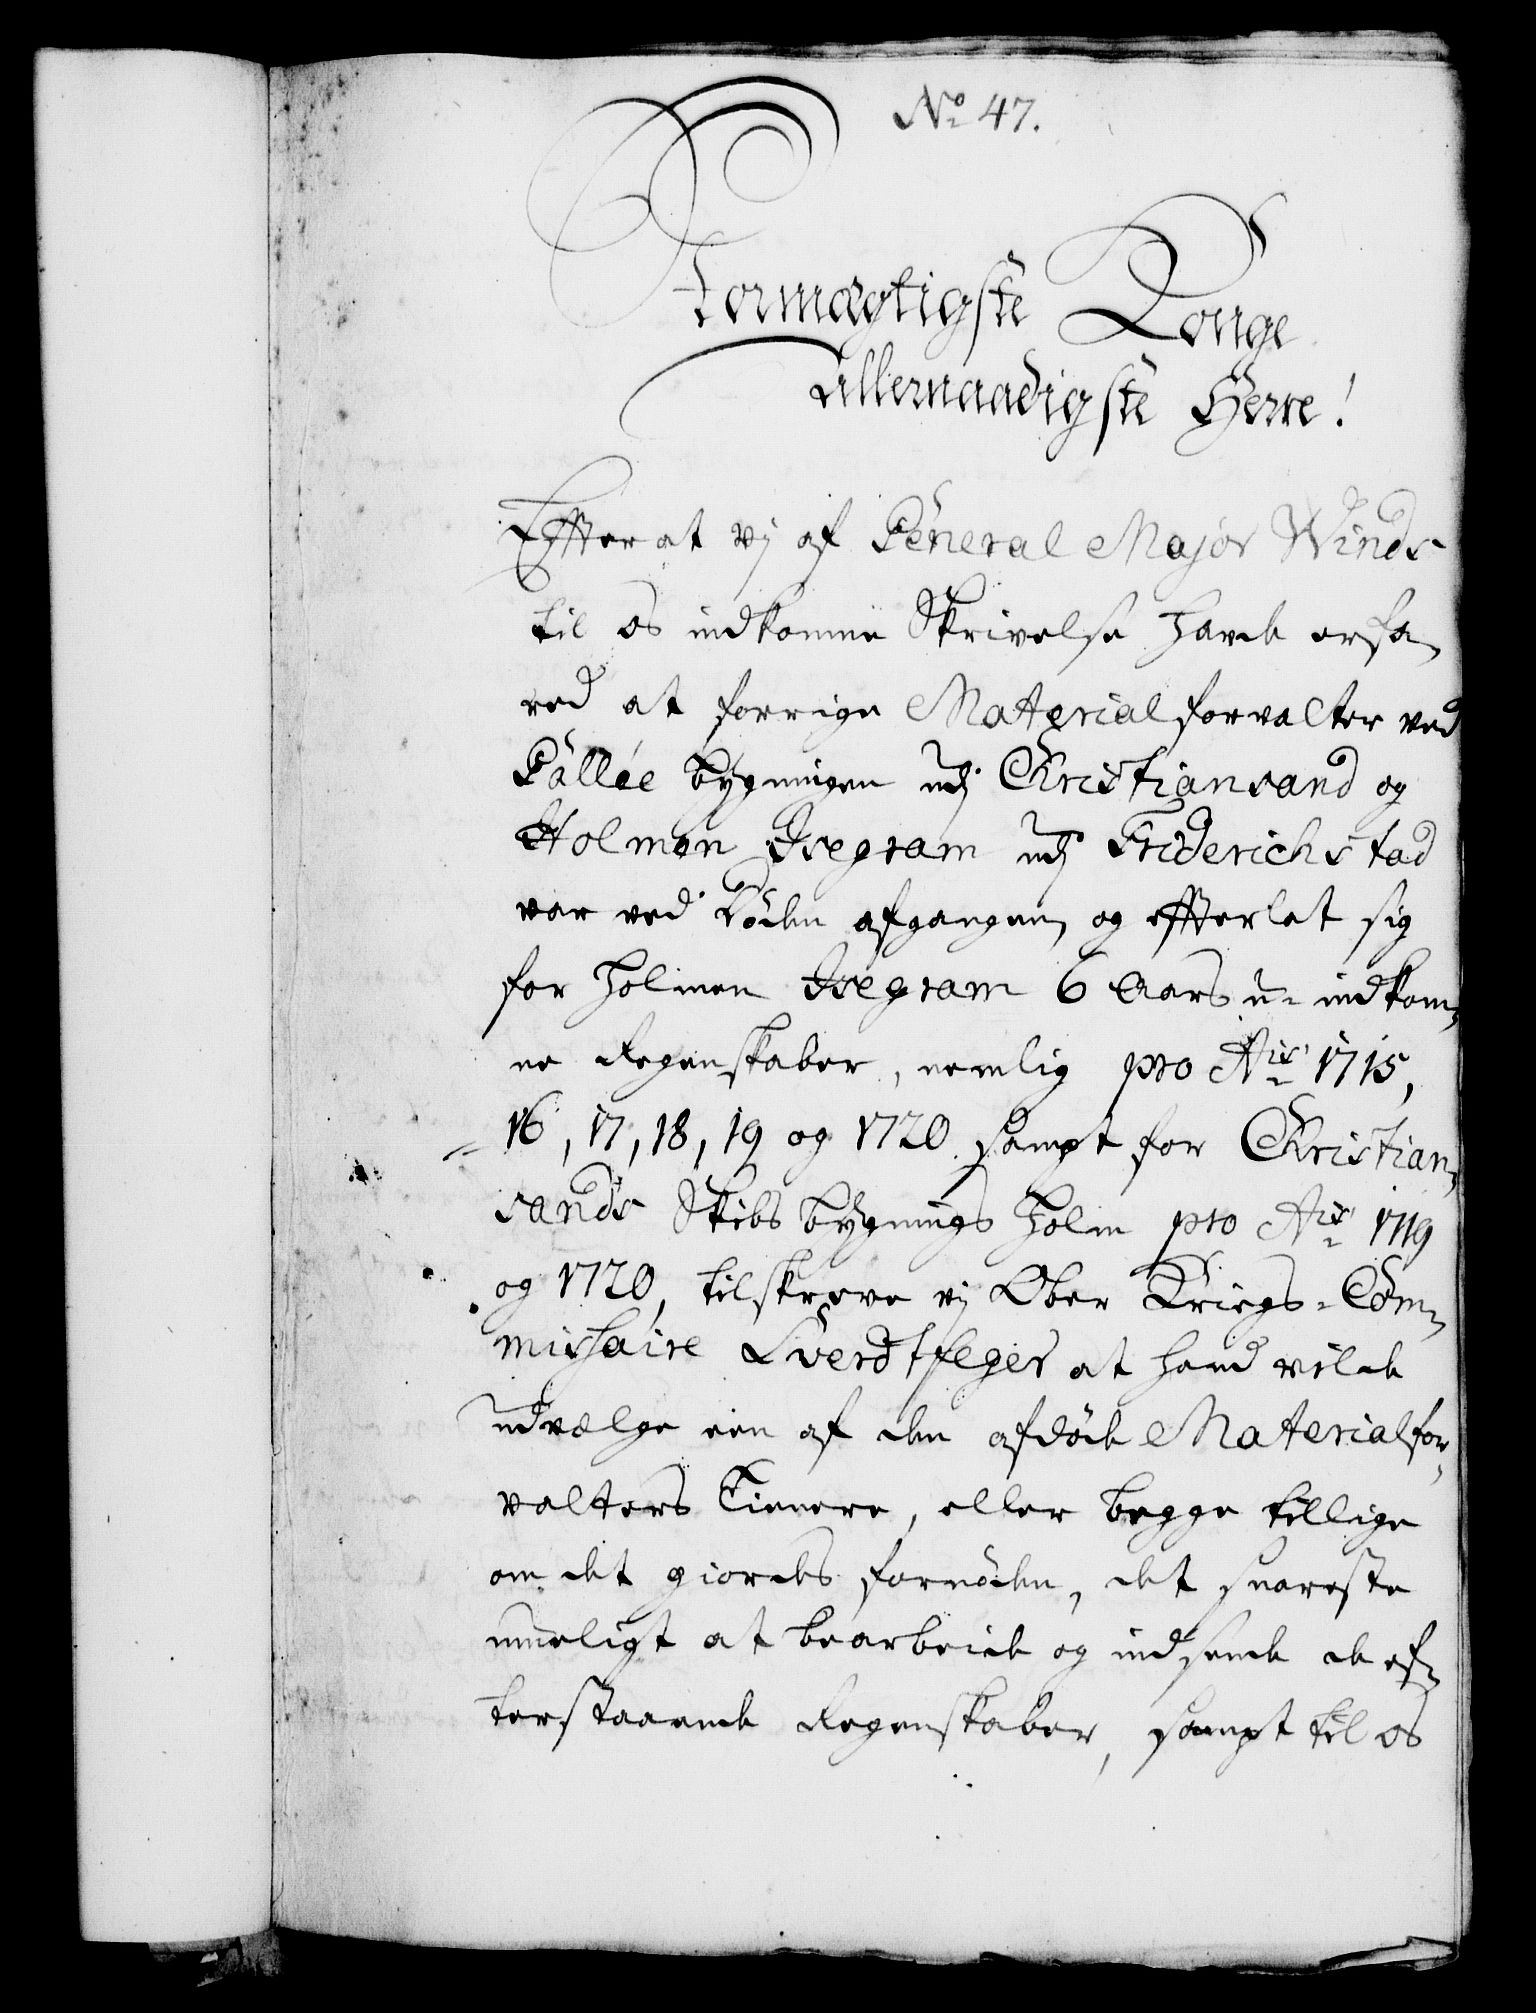 No 47.
Stormægtigste Konge
Allernaadigste Herre!
Effter at vj af General Major Winds
til os indkomne Skrivelse hafde erfa-
red at forrige Materialforvalter ved
Gallée bÿgningen udj Christiansand og
Holmen Isegram udj Friderichstad
var ved Döden afgangen, og effterlat sig
for Holmen Isegram 6 Aars u-indkom-
ne Regenskaber, nemlig pro Ais 1715,
16, 17, 18, 19 og 1720 sampt for Christian-
sands Skibs bÿgnings Holm pro Ais 1719
og 1720, tilskreve vj Ober Kriegs-Com-
missaire Sverdtfeger at hand vilde
udvælge een af den afdöde Materialfor-
valters Tienere, eller begge tillige
om det giordes fornöden, det snareste
mueligt at bearbeide og indsende de ef-
terstaaende Regenskaber, sampt til os